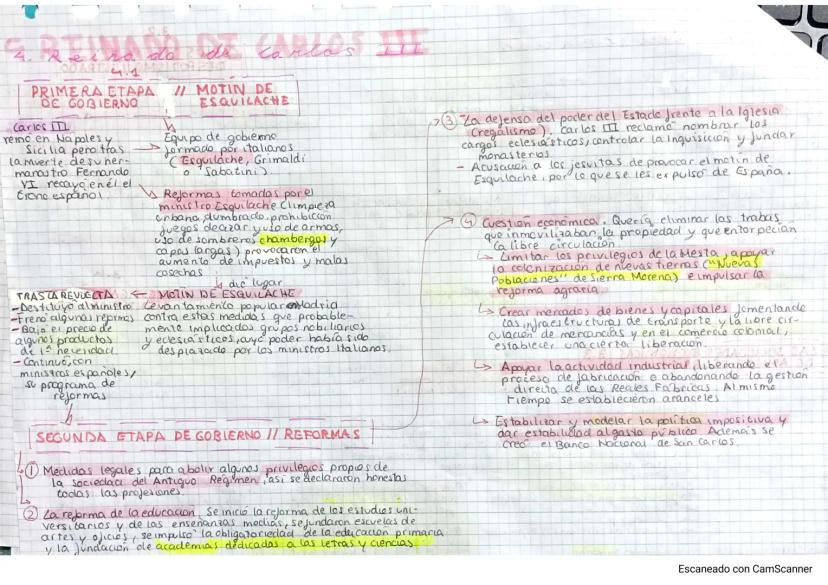 4. Reinado de Carlos III
4.1
PRIMERA ETAPA // MOTIN DE
DE GOBIERNO ESQUILACHE
Carlos III
reinó en Napoles y
Sicilia pero tras
la muerte de su her-
manastro Fernando
VI recayó en él el
trono español
Equipo de gobierno
formado por italianos
(Esquilache, Grimaldi
o Sabatini)
Reformas tomadas por el
ministro Esquilache (limpieza
urbana, alumbrado, prohibición
juegos de azar y uso de armas,
uso de sombreros chambergos y
capas largas) provocaron el
aumento de impuestos y malas
cosechas
dio lugar
MOTIN DE ESQUILACHE
Levantamiento popular en Madrid
contra estas medidas que probable-
mente implicados grupos nobiliarios
y eclesiásticos, cuyo poder había sido
desplazado por los ministros italianos.
TRAS LA REVUELTA
- Destituyó al ministro
- Frenó algunas reformas
- Bajó el precio de
algunos productos
de 1ª necesidad
- Continuó, con
ministros españoles,
su programa de
reformas
SEGUNDA ETAPA DE GOBIERNO // REFORMAS
① Medidas legales para abolir algunos privilegios propios de
la sociedad del Antiguo Régimen, así se declararon honestas
todas las profesiones.
② La reforma de la educación. Se inició la reforma de los estudios uni-
versitarios y de las enseñanzas medias, se fundaron escuelas de
artes y oficios, se impulsó la obligatoriedad de la educación primaria
y la fundación de academias dedicadas a las letras y ciencias
③ La defensa del poder del Estado frente a la Iglesia
(regalismo). Carlos III reclamó nombrar los
cargos eclesiásticos, controlar la Inquisición y fundar
monasterios
- Acusación a los jesuitas de provocar el motín de
Esquilache, por lo que se les expulsó de España.
④ Cuestión económica. Quería eliminar las trabas
que inmovilizaban la propiedad y que entorpecían
la libre circulación
↳ Limitar los privilegios de la Mesta, apoyar
la colonización de nuevas tierras ("Nuevas
Poblaciones" de Sierra Morena) e impulsar la
reforma agraria.
↳ Crear mercados de bienes y capitales fomentando
las infraestructuras de transporte y la libre cir-
culación de mercancías y en el comercio colonial,
establecer una cierta liberación.
↳ Apoyar la actividad industrial, liberando el
proceso de fabricación o abandonando la gestión
directa de las Reales Fábricas. Al mismo
tiempo se establecieron aranceles
↳ Estabilizar y modelar la política impositiva y
dar estabilidad al gasto público Además se
creó el Banco Nacional de San Carlos.
Escaneado con CamScanner